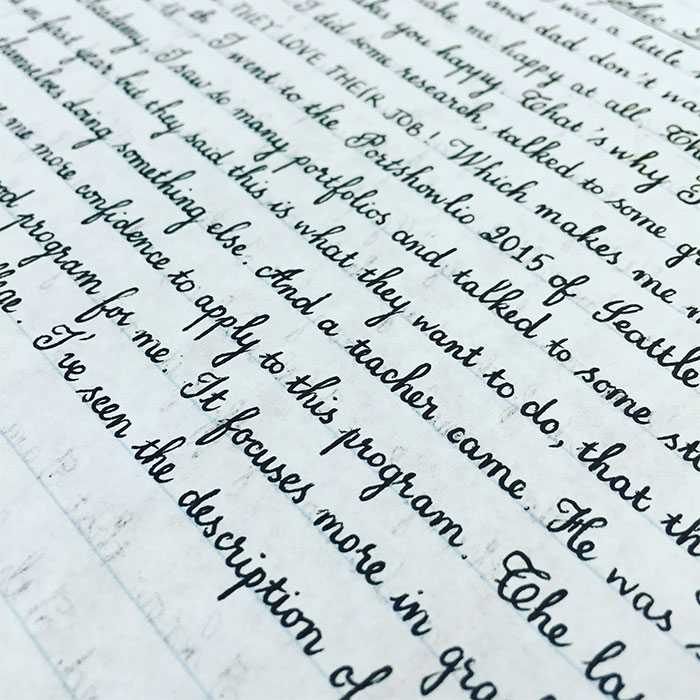 was a little
and dad don't
make me happy at all
you happy That's why I
I did some research, talked to some
THEY LOVE THEIR JOB! Which makes me
I went to the Portshowlio 2015 of Seattle
I saw so many portfolios and talked to some
in first year but they said this is what they want to do, that
themselves doing something else. And a teacher came. He was
me more confidence to apply to this program. The
program for me. It focuses more in
I've seen the description of